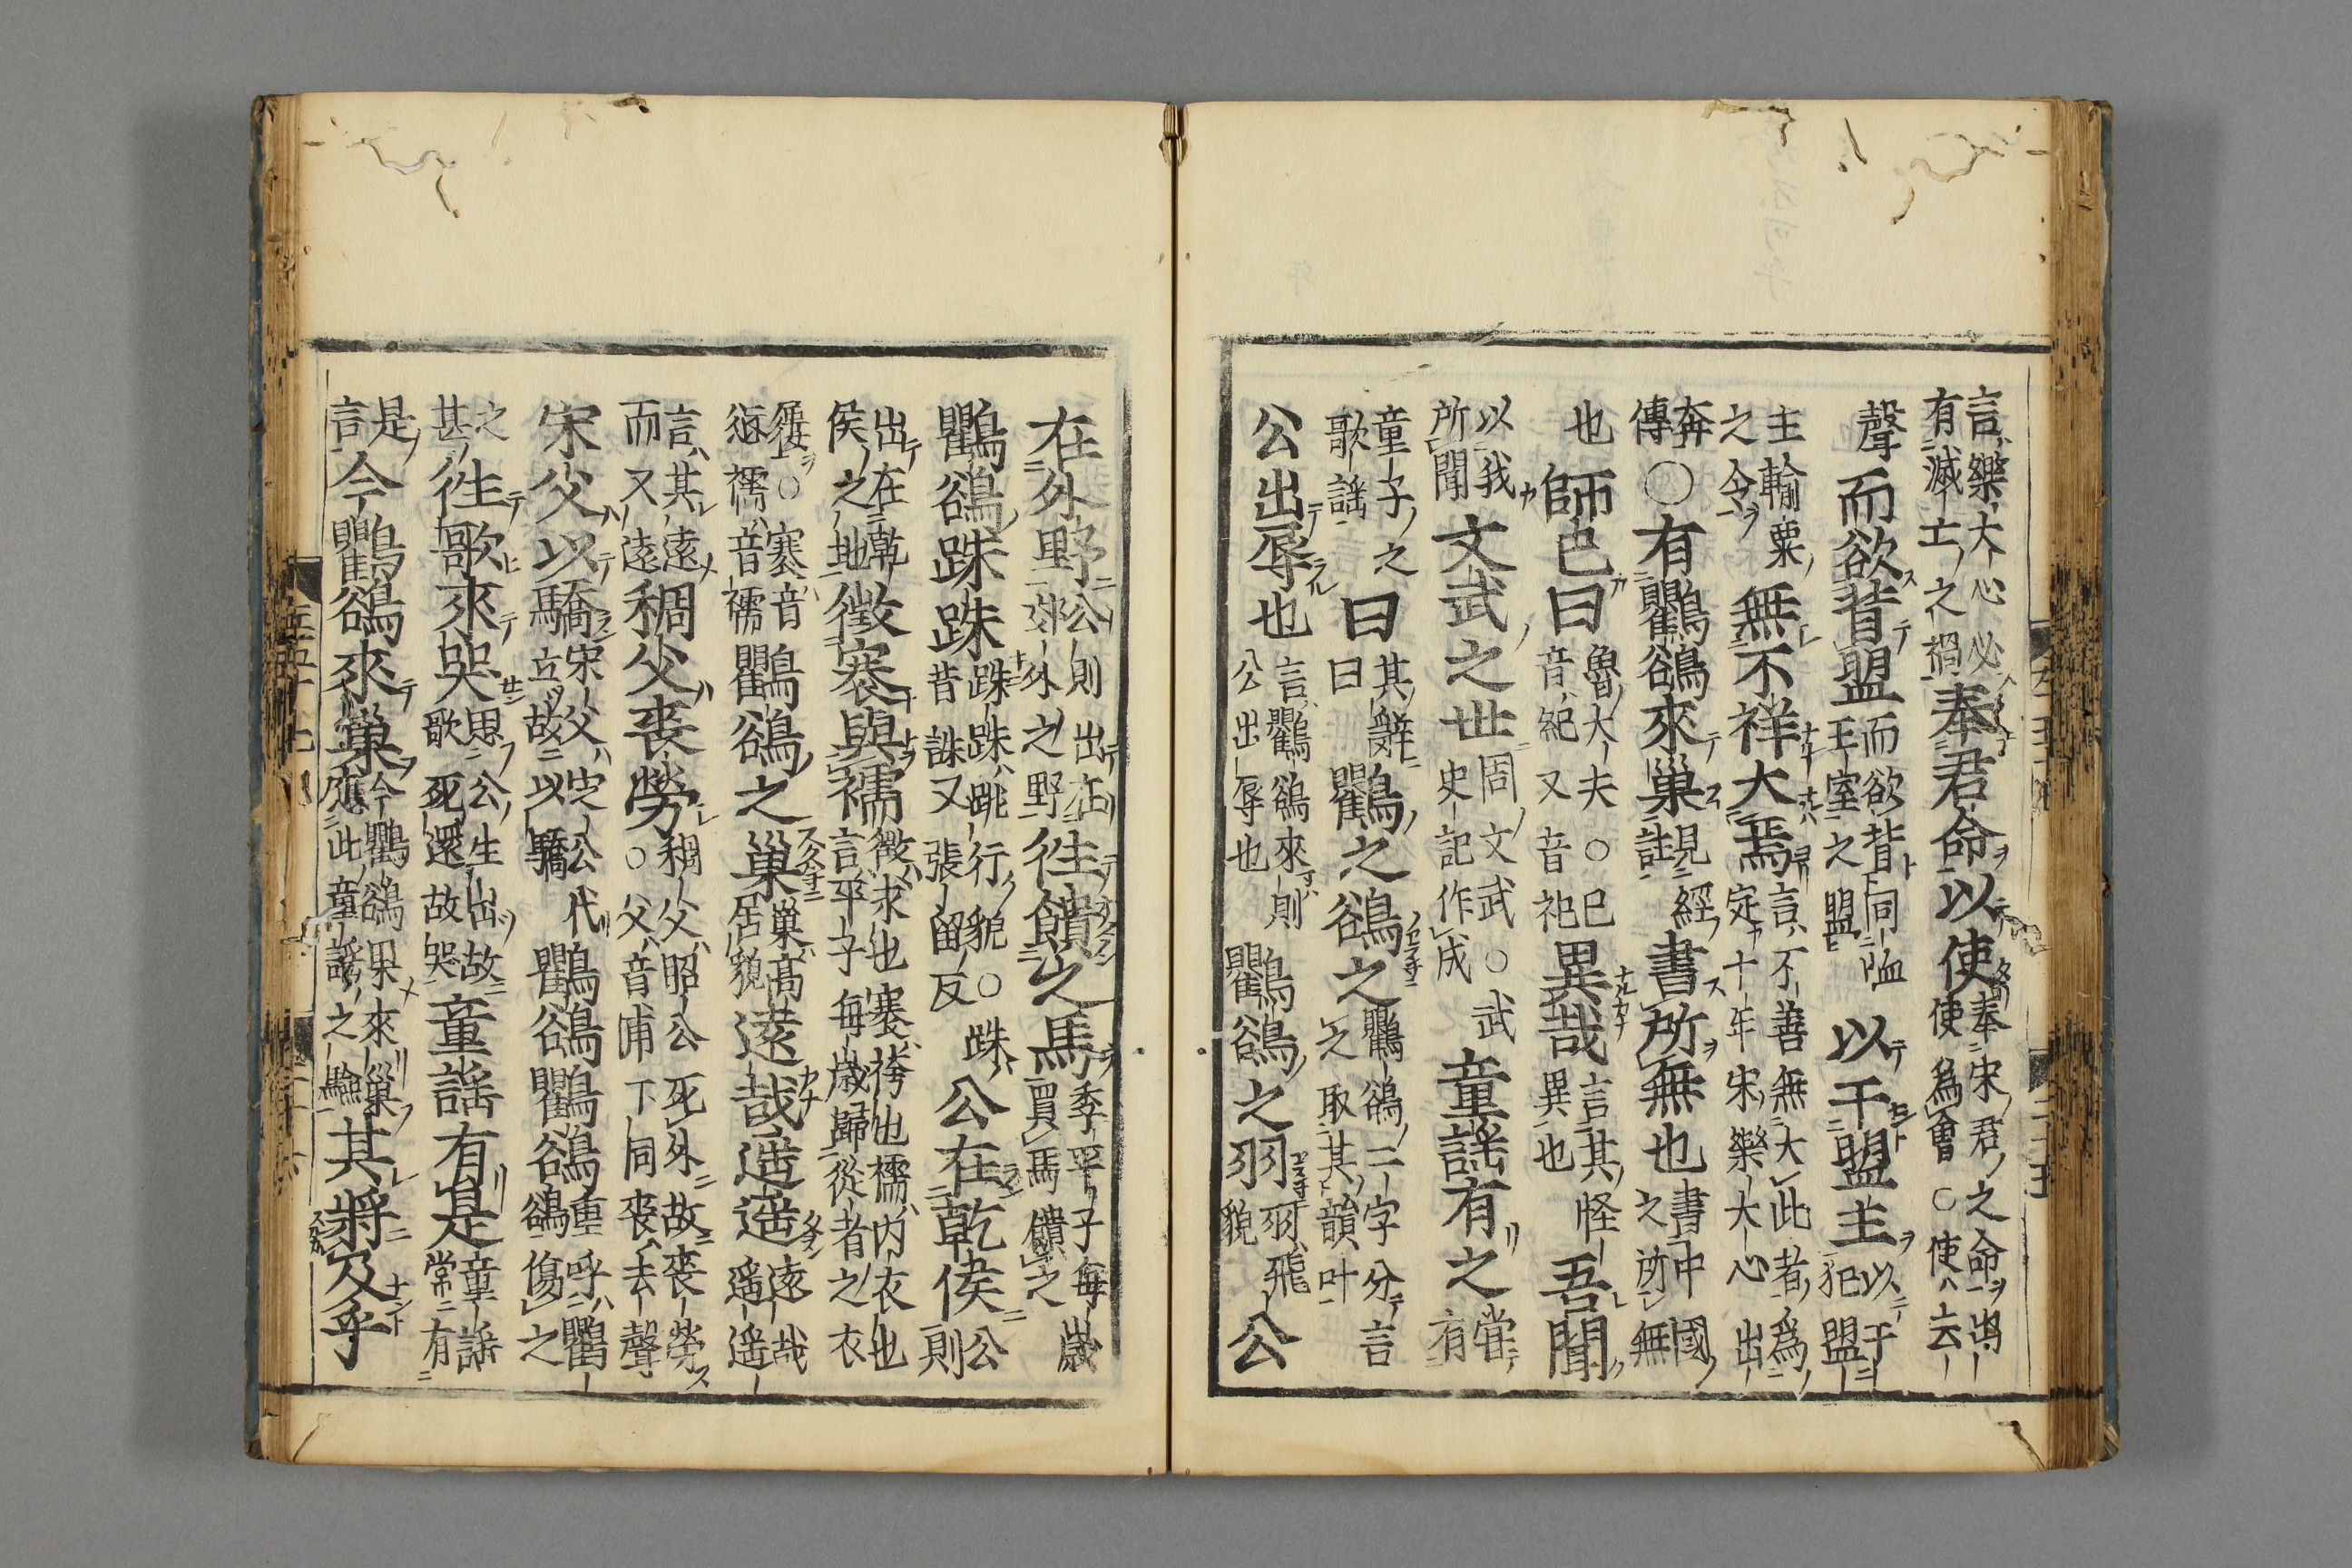 言樂大心必有滅亡之禍奉君命以使奉宋君之命出使爲會○使去
聲而欲背盟而欲背同盟王室之盟以干盟主以干犯盟
主輸粟之令無不祥大焉言不善無大此者爲定十年宋樂大心出
奔傳○有鸜鵒來巢見經註書所無也書中國之所無
也師已曰魯大夫○已音紀又音祀異哉言其怪異也吾聞
以我所聞文武之世周文武○武史記作成童謡有之嘗有
童子之歌謡曰其辭曰鸜之鵒之鸜鵒二字分言之取其韻叶
公出辱也言鸜鵒來則公出辱也鸜鵒之羽羽飛貌公
在外野公則出在郊外之野往饋之馬季平子每歳買馬饋之
鸜鵒跦跦跦跦跳行貌○跦昔誅又張留反公在乾侯公則
出在乾侯之地徵褰與襦徵求也褰袴也襦内衣也言平子每歳歸從者之衣
履○褰音愆襦音襦鸜鵒之巢巢高居貌遠哉遥遥遠哉遥遥
言其遠而又遠稠父喪勞稠父昭公死外故喪勞○父音甫下同喪去聲
宋父以驕宋父定公代立故以驕鸜鵒鸜鵒重呼鸜鵒傷之
之甚往歌來哭思公生出故歌死還故哭童謡有是童謡常有
是言今鸜鵒來巢今鸜鵒果來巢應此童謡之驗其將及乎